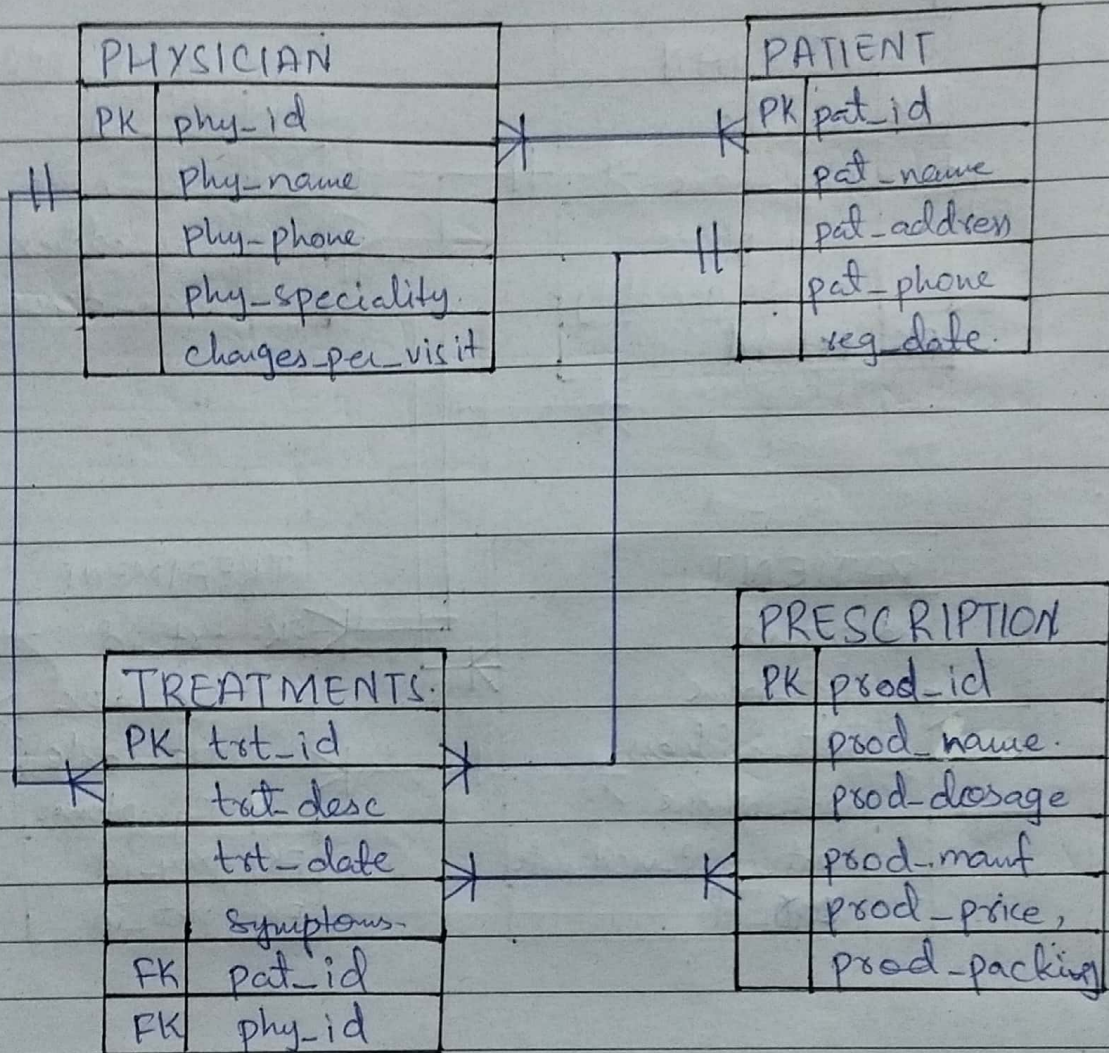 PHYSICIAN
PK phy_id
phy_name
phy_phone
phy_speciality.
charges_per_visit
PATIENT
PK pat_id
pat_name
pat_address
pat_phone
reg_date.
TREATMENTS.
PK trt_id
trt_desc
trt_date
symptoms
FK pat_id
FK phy_id
PRESCRIPTION
PK prod_id
prod_name.
prod_dosage
prod_manf
prod_price,
prod_packing